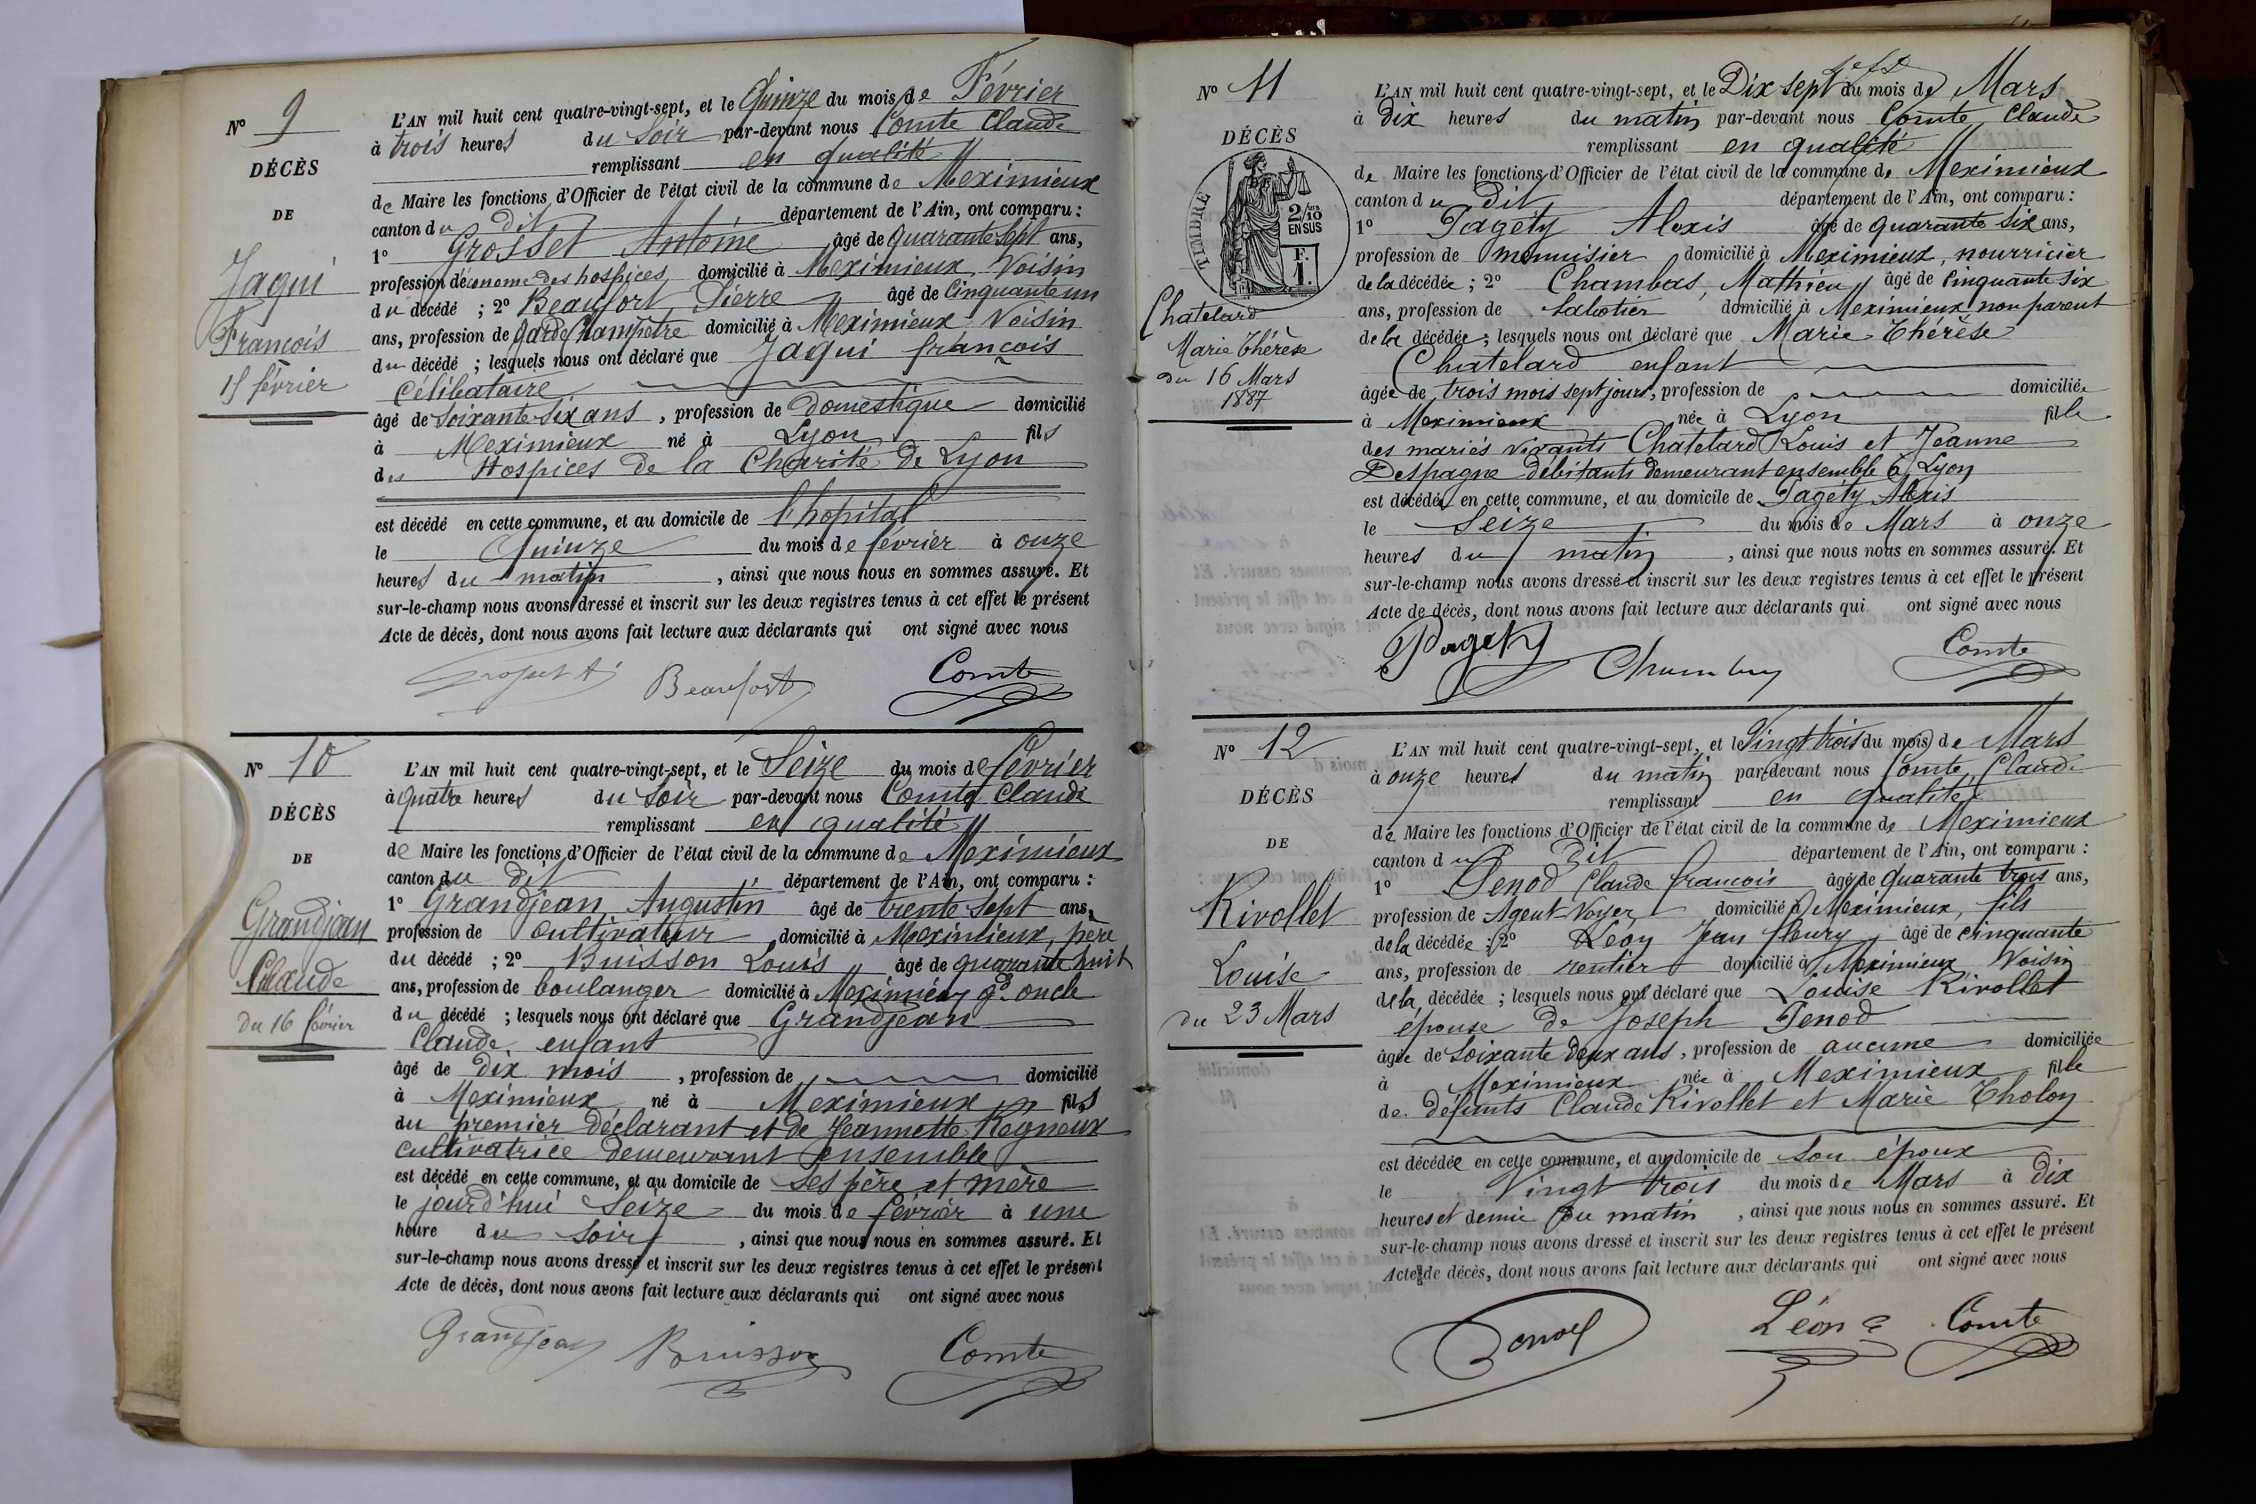 N° 9
DÉCÈS
DE
Jaqui
François
15 février
L'AN mil huit cent quatre-vingt-sept, et le Quinze du mois de Février
à trois heures du Soir par-devant nous Comte Claude
remplissant en qualité
de Maire les fonctions d'Officier de l'état civil de la commune de Meximieux
canton du dit département de l'Ain, ont comparu :
1° Grosset Antoine âgé de quarante sept ans,
profession d'économe des hospices domicilié à Meximieux Voisin
du décédé ; 2° Beaufort Pierre âgé de Cinquante un
ans, profession de garde Champêtre domicilié à Meximieux Voisin
du décédé ; lesquels nous ont déclaré que Jaqui françois
Célibataire
âgé de Soixante Six ans , profession de Domestique domicilié
à Meximieux né à Lyon fils
des Hospices de la Charité de Lyon
est décédé en cette commune, et au domicile de l'hopital
le Quinze du mois de février à onze
heures du matin , ainsi que nous nous en sommes assuré. Et
sur-le-champ nous avons dressé et inscrit sur les deux registres tenus à cet effet le présent
Acte de décès, dont nous avons fait lecture aux déclarants qui ont signé avec nous
Beaufort Comte
N° 10
DÉCÈS
DE
Grandjean
Claude
du 16 février
L'AN mil huit cent quatre-vingt-sept, et le Seize du mois de février
à quatre heures du Soir par-devant nous Comte Claude
remplissant en qualité
de Maire les fonctions d'Officier de l'état civil de la commune de Meximieux
canton du dit département de l'Ain, ont comparu :
1° Grandjean Augustin âgé de trente sept ans,
profession de Cultivateur domicilié à Meximieux, père
du décédé ; 2° Buisson Louis âgé de quarante huit
ans, profession de boulanger domicilié à Meximieux gd oncle
du décédé ; lesquels nous ont déclaré que Grandjean
Claude enfant
âgé de Dix mois , profession de domicilié
à Meximieux né à Meximieux fils
du premier déclarant et de Jeannette Regneux
Cultivatrice demeurant ensemble
est décédé en cette commune, et au domicile de ses père et mère
le jourd'hui Seize du mois de février à une
heure du Soir , ainsi que nous nous en sommes assuré. Et
sur-le-champ nous avons dressé et inscrit sur les deux registres tenus à cet effet le présent
Acte de décès, dont nous avons fait lecture aux déclarants qui ont signé avec nous
Grandjean Buisson Comte
N° 11
DÉCÈS
TIMBRE
2/10
EN SUS
F.
1.
Chatelard
Marie Thérèse
du 16 Mars
1887
L'AN mil huit cent quatre-vingt-sept, et le Dix sept du mois de Mars
à Dix heures du matin par-devant nous Comte Claude
remplissant en qualité
de Maire les fonctions d'Officier de l'état civil de la commune de Meximieux
canton du Dit département de l'Ain, ont comparu :
1° Pagéty Alexis âgé de quarante six ans,
profession de menuisier domicilié à Meximieux, nourricier
de la décédée ; 2° Chambas, Mathieu âgé de Cinquante six
ans, profession de Sabotier domicilié à Meximieux, non parent
de la décédée ; lesquels nous ont déclaré que Marie Thérèse
Chatelard enfant
âgée de trois mois sept jours, profession de domiciliée
à Meximieux née à Lyon fille
des mariés vivants Chatelard Louis et Jeanne
Despagne débitants demeurant ensemble à Lyon
est décédée en cette commune, et au domicile de Pagéty Alexis
le Seize du mois de Mars à onze
heures du matin , ainsi que nous nous en sommes assuré. Et
sur-le-champ nous avons dressé et inscrit sur les deux registres tenus à cet effet le présent
Acte de décès, dont nous avons fait lecture aux déclarants qui ont signé avec nous
Pagety Comte
N° 12
DÉCÈS
DE
Rivollet
Louise
du 23 Mars
L'AN mil huit cent quatre-vingt-sept, et le Vingt trois du mois de Mars
à onze heures du matin par-devant nous Comte Claude
remplissant en qualité
de Maire les fonctions d'Officier de l'état civil de la commune de Meximieux
canton du Dit département de l'Ain, ont comparu :
1° Penod Claude francois âgé de quarante trois ans,
profession de Agent-Voyer domicilié à Meximieux, fils
de la décédée ; 2° Léon Jean fleury âgé de cinquante
ans, profession de rentier domicilié à Meximieux Voisin
de la décédée ; lesquels nous ont déclaré que Louise Rivollet
épouse de Joseph Penod
âgée de Soixante deux ans , profession de aucune domiciliée
à Meximieux née à Meximieux fille
de défunts Claude Rivollet et Marie Tholon
est décédée en cette commune, et au domicile de son époux
le Vingt trois du mois de Mars à Dix
heures et demie du matin , ainsi que nous nous en sommes assuré. Et
sur-le-champ nous avons dressé et inscrit sur les deux registres tenus à cet effet le présent
Acte de décès, dont nous avons fait lecture aux déclarants qui ont signé avec nous
Penod Léon Comte